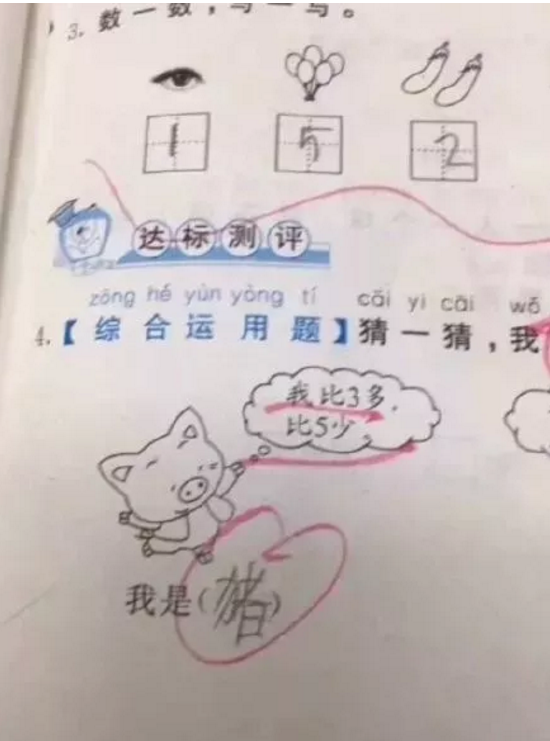 3. 数一数，写一写。
1 5 2
达标测评
zōng hé yùn yòng tí cāi yi cāi wǒ
4.【综合运用题】猜一猜，我
我比3多，
比5少。
我是(猪)